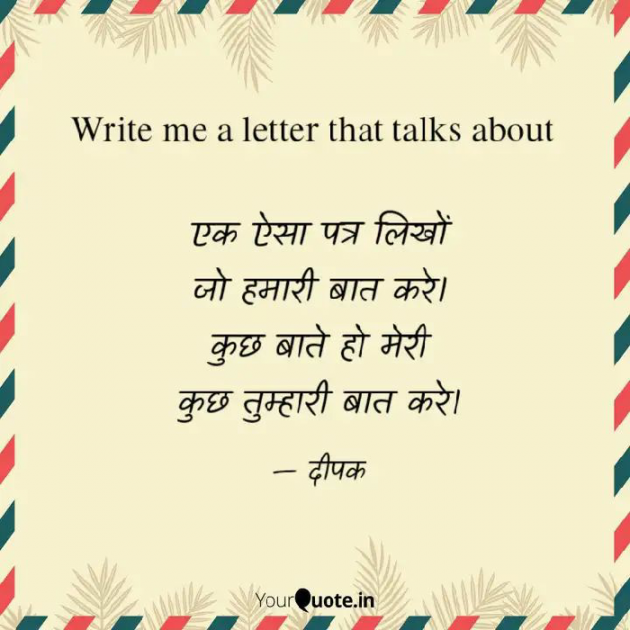 Write me a letter that talks about
एक ऐसा पत्र लिखों
जो हमारी बात करे।
कुछ बाते हो मेरी
कुछ तुम्हारी बात करे।
— दीपक
YourQuote.in